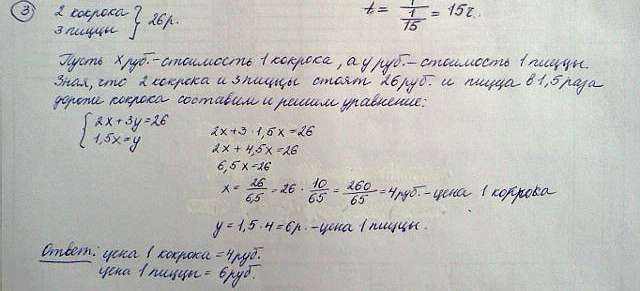 ③ 2 кокрока } 26р.
3 пиццы
t = 1/(1/15) = 15г.
Пусть х руб.-стоимость 1 кокрока, а у руб.-стоимость 1 пиццы.
Зная, что 2 кокрока и 3 пиццы стоят 26 руб. и пицца в 1,5 раза
дороги кокрока составим и решим уравнение:
{ 2x+3y=26
1,5x=y
2x+3·1,5x=26
2x+4,5x=26
6,5x=26
x = 26/6,5 = 26 · 10/65 = 260/65 = 4руб.-цена 1 кокрока
y = 1,5·4=6р.-цена 1 пиццы.
Ответ: цена 1 кокрока = 4руб.
цена 1 пиццы = 6руб.